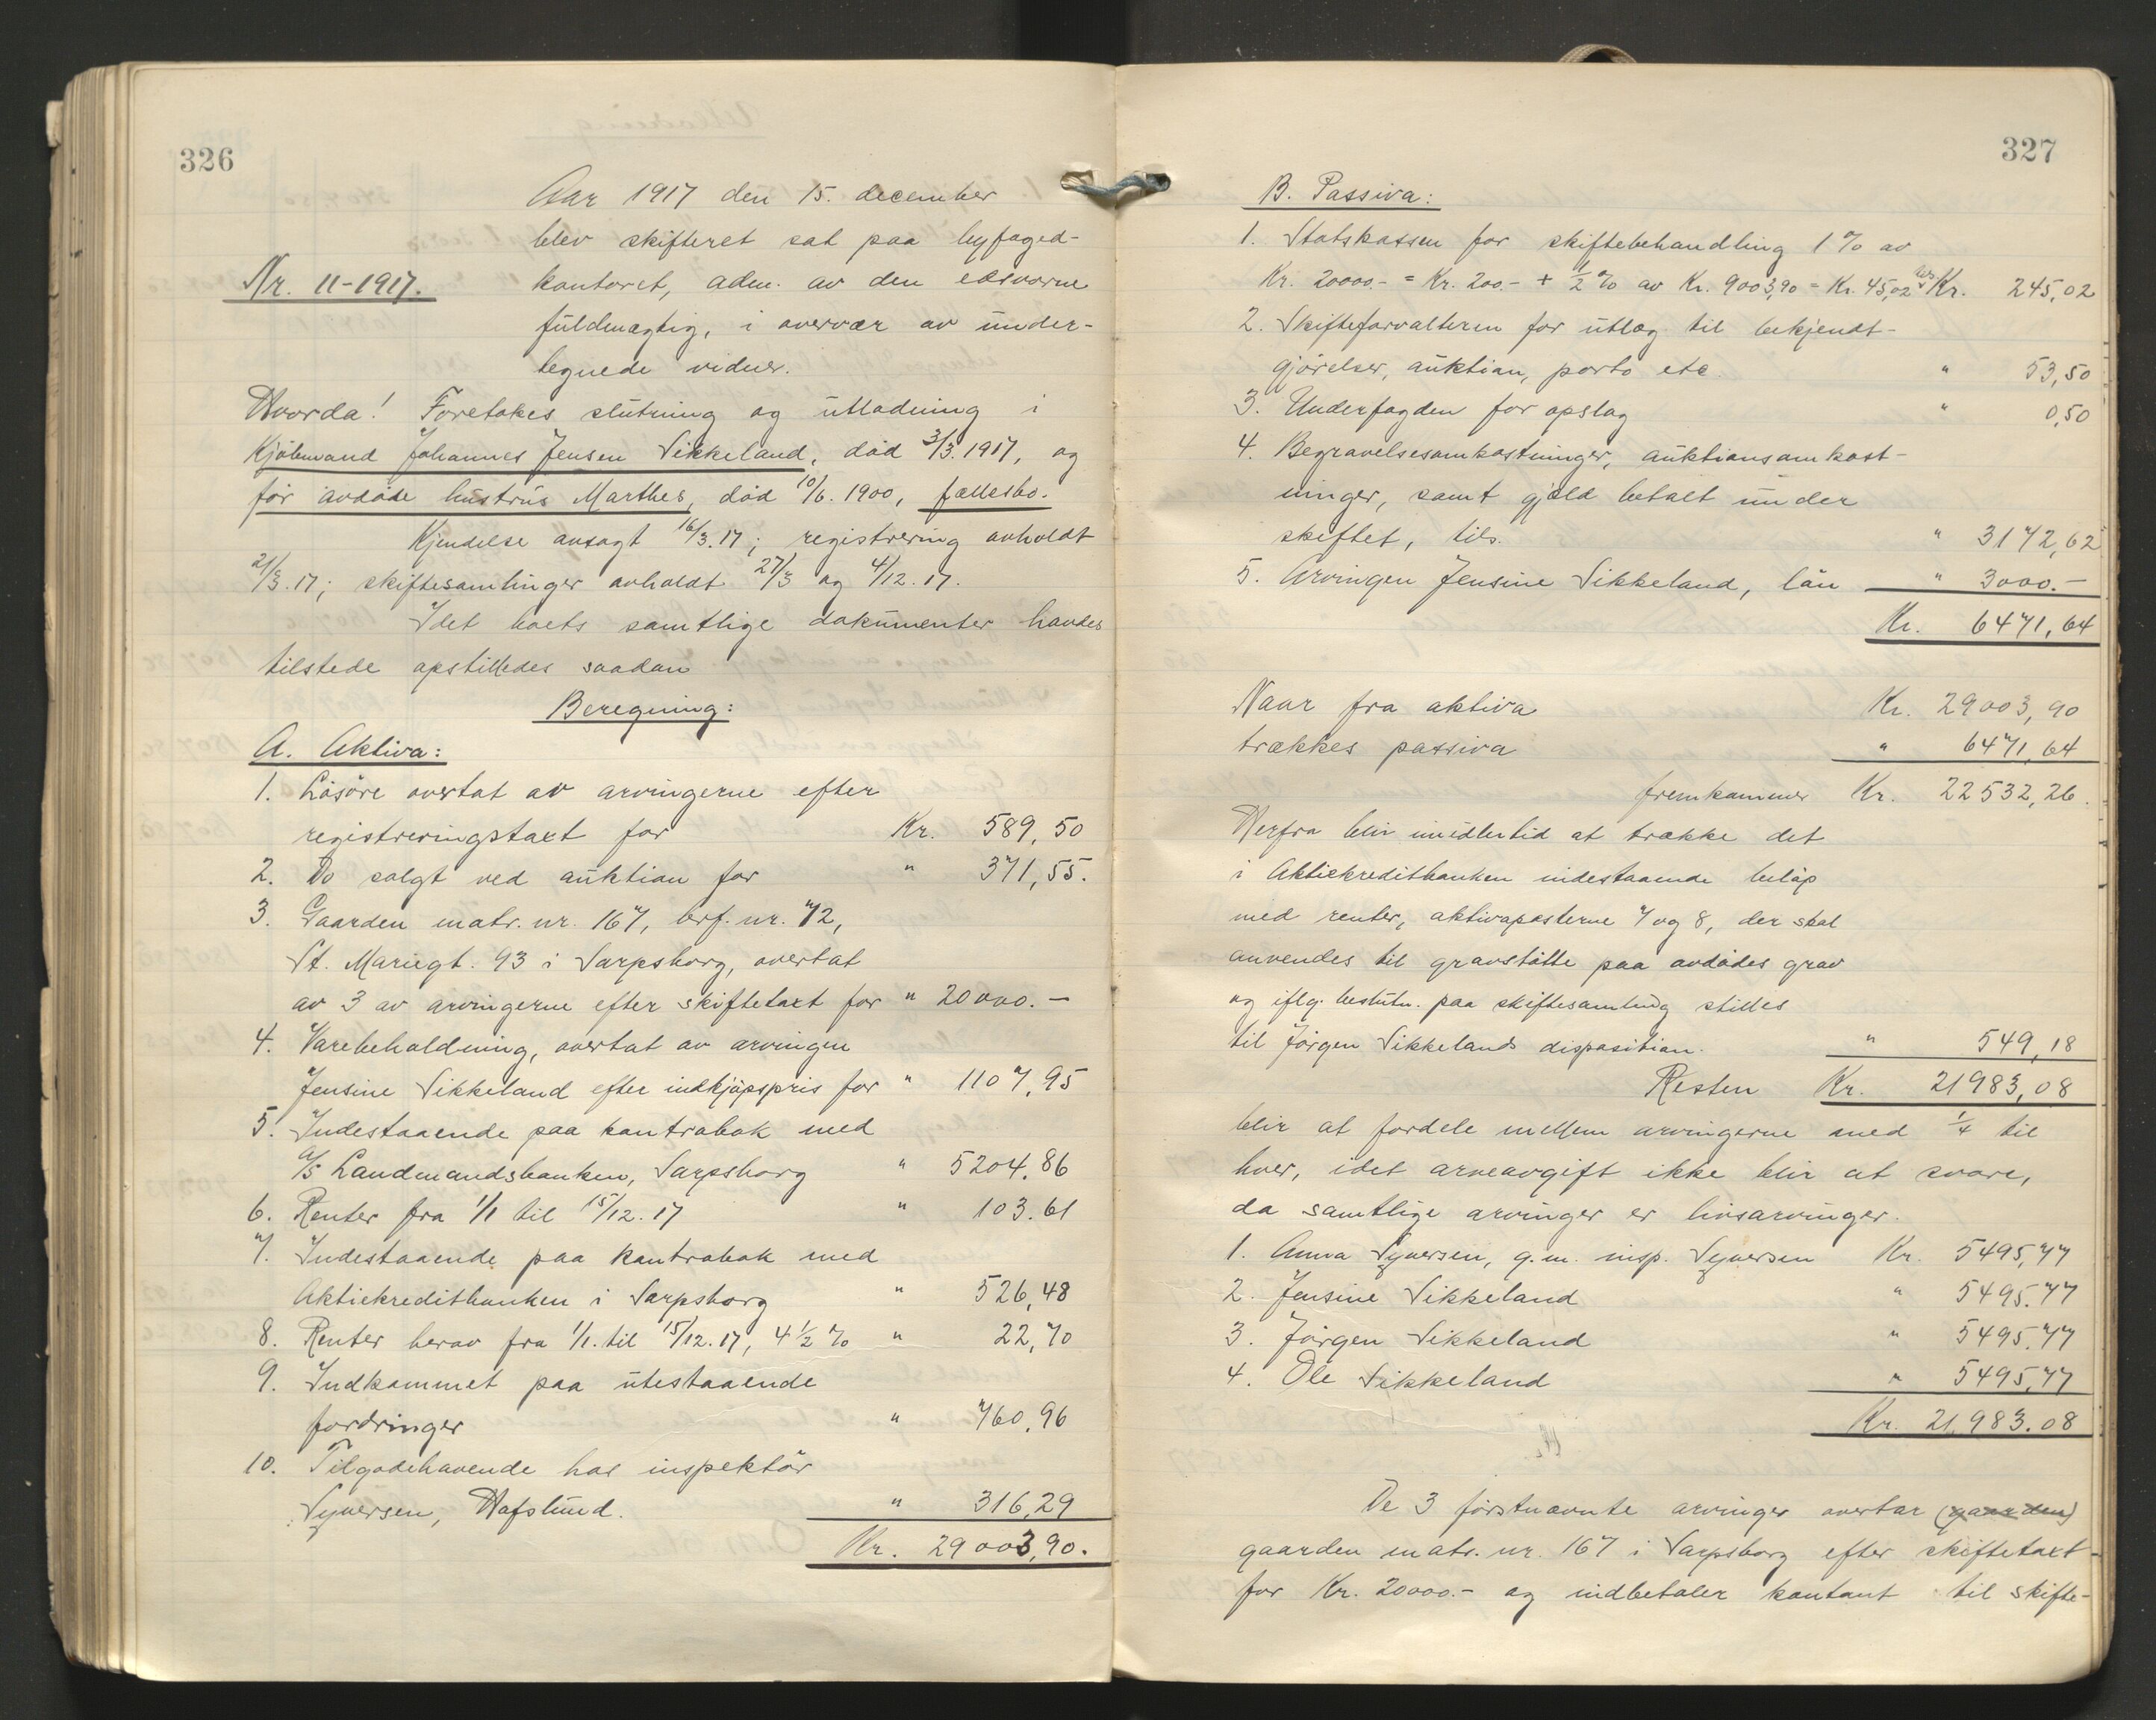 326
Aar 1917 den 15. december
blev skifteret sat paa byfoged-
Nr. 11-1917.
kontoret, adm. av den edsvorne
fuldmægtig, i overvær av under-
tegnede vidner.
Hvorda! Foretokes slutning og utlodning i
Kjöbmand Johannes Jensen Sikkeland, död 3/3. 1917, og
för avdöde hustrus Marthes, död 10/6. 1900, fællesbo.
Kjendelse avsagt 16/3. 17; registrering avholdt
21/3. 17; skiftesamlinger avholdt 27/3 og 4/12. 17.
Idet boets samtlige dokumenter havdes
tilstede opstilledes saadan
Beregning:
A. Aktiva:
1. Lösöre overtat av arvingerne efter
registreringstaxt for Kr. 589,50
2. Do solgt ved auktion for " 371,55.
3. Gaarden matr. nr. 167, brf. nr. 72,
St. Mariegt. 93 i Sarpsborg, overtat
av 3 av arvingerne efter skiftetaxt for " 20000.-
4. Varebeholdning, overtat av arvingen
Jensine Sikkeland efter indkjöpspris for " 1107,95
5. Indestaaende paa kontrabok med
A/S Landmandsbanken, Sarpsborg " 5204.86
6. Renter fra 1/1 til 15/12. 17 " 103.61
7. Indestaaende paa kontrabok med
Aktiekreditbanken i Sarpsborg " 526,48
8. Renter herav fra 1/1. til 15/12. 17, 4 1/2 % " 22,70
9. Indkommet paa utestaaende
fordringer " 760,96
10. Tilgodehavende hos inspektör
Syversen, Hafslund. " 316,29
Kr. 29003,90.
327
B. Passiva:
1. Statskassen for skiftebehandling 1% av
Kr. 20000.- = Kr. 200.- + 1/2 % av Kr. 9003,90 = Kr. 45,02 Kr. 245,02
2. Skifteforvalteren for utlæg til bekjendt-
gjörelser, auktion, porto etc " 53,50
3. Underfogden for opslag " 0,50
4. Begravelsesomkostninger, auktionsomkost-
ninger, samt gjæld betalt under
skiftet, tils. " 3172,62
5. Arvingen Jensine Sikkeland, lån " 3000.-
Kr. 6471,64
Naar fra aktiva Kr. 29003,90
trækkes passiva " 6471,64
fremkommer Kr. 22532,26.
Herfra blir imidlertid at trække det
i Aktiekreditbanken indestaaende belöp
med renter, aktivaposterne 7 og 8, der skal
anvendes til gravstötte paa avdödes grav
og iflg. beslutn. paa skiftesamling stilles
til Jörgen Sikkelands disposition. " 549,18
Resten Kr. 21983,08
blir at fordele mellem arvingerne med 1/4 til
hver, idet arveavgift ikke blir at svare,
da samtlige arvinger er livsarvinger.
1. Anna Syversen, g.m. insp. Syversen Kr. 5495,77
2. Jensine Sikkeland " 5495.77
3. Jörgen Sikkeland " 5495.77
4. Ole Sikkeland " 5495,77
Kr. 21.983.08
De 3 förstnævnte arvinger overtar (gaarden)
gaarden matr. nr. 167 i Sarpsborg efter skiftetaxt
for Kr. 20000.- og indbetaler kontant til skifte-